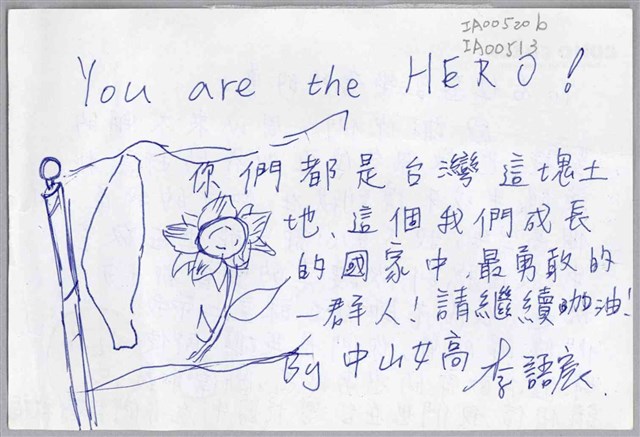 IA00520b
IA00513
You are the HERO!
你們都是台灣這塊土
地、這個我們成長
的國家中最勇敢的
一群人!請繼續加油!
By 中山女高 李語宸